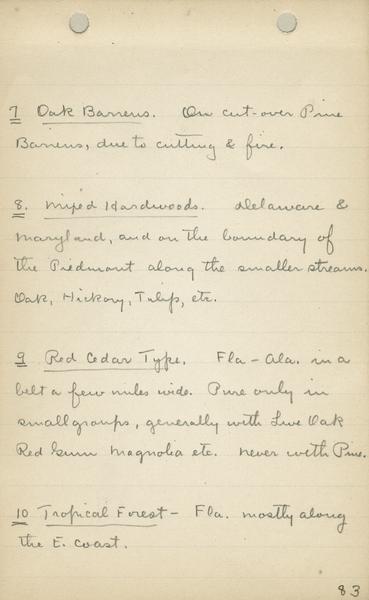 7 Oak Barrens. On cut-over Pine
Barrens, due to cutting & fire.
8. Mixed Hardwoods. Delaware &
Maryland, and on the boundary of
the Piedmont along the smaller streams.
Oak, Hickory, Tulip, etc.
9 Red Cedar Type. Fla - Ala. in a
belt a few miles wide. Pure only in
small groups, generally with Live Oak
Red Gum Magnolia etc. never with Pine.
10 Tropical Forest - Fla. mostly along
the E. Coast.
83